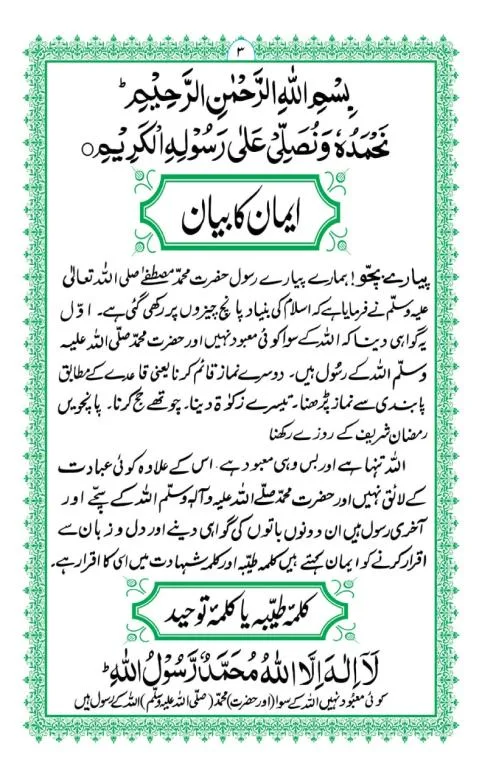 ۳
بِسْمِ اللهِ الرَّحْمٰنِ الرَّحِيْمِ ؕ
نَحْمَدُهٗ وَنُصَلِّيْ عَلٰى رَسُوْلِهِ الْكَرِيْمِ ○
ایمان کا بیان
پیارے بچّو! ہمارے پیارے رسول حضرت محمّد مصطفےٰ صلی اللہ تعالیٰ
علیہ وسلّم نے فرمایا ہے کہ اسلام کی بنیاد پانچ چیزوں پر رکھی گئی ہے۔ اوّل
یہ گواہی دینا کہ اللہ کے سوا کوئی معبود نہیں اور حضرت محمّد صلّی اللہ علیہ
وسلّم اللہ کے رسُول ہیں۔ دوسرے نماز قائم کرنا یعنی قاعدے کے مطابق
پابندی سے نماز پڑھنا۔ تیسرے زکوٰۃ دینا۔ چوتھے حج کرنا۔ پانچویں
رمضان شریف کے روزے رکھنا
اللہ تنہا ہے اور بس وہی معبود ہے۔ اس کے علاوہ کوئی عبادت
کے لائق نہیں اور حضرت محمّد صلّے اللہ علیہ وآلہٖ وسلّم اللہ کے سچّے اور
آخری رسول ہیں ان دونوں باتوں کی گواہی دینے اور دل و زبان سے
اقرار کرنے کو ایمان کہتے ہیں کلمہ طیّبہ اور کلمہ شہادت میں اسی کا اقرار ہے۔
کلمۂ طیّبہ یا کلمۂ توحید
لَاۤ اِلٰهَ اِلَّا اللهُ مُحَمَّدٌ رَّسُوْلُ اللهِ ؕ
کوئی معبُود نہیں اللہ کے سوا (اور حضرت) محمّد (صلی اللہ علیہ وسلّم) اللہ کے رسول ہیں